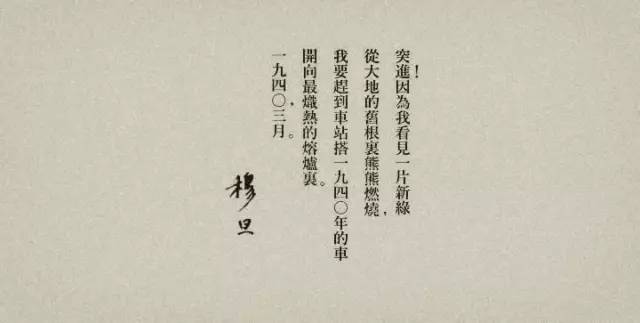 突進！因為我看見一片新綠
從大地的舊根裏熊熊燃燒，
我要趕到車站搭一九四〇年的車
開向最熾熱的熔爐裏。
一九四〇，三月。
穆旦